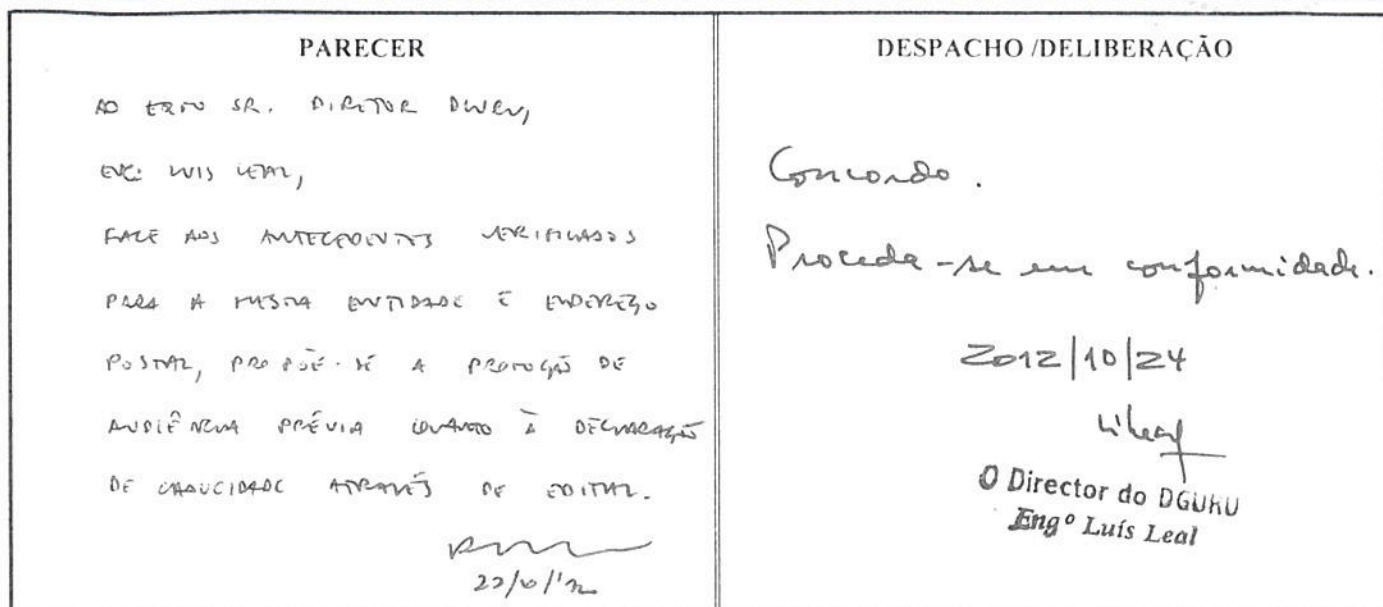 PARECER
AO EXMO SR. DIRETOR
ENG. LUIS LEAL,
FACE AOS ANTECEDENTES VERIFICADOS
PARA A MESMA ENTIDADE E ENDEREÇO
POSTAL, PROPÕE-SE A PROMOÇÃO DE
AUDIÊNCIA PRÉVIA QUANTO À DECLARAÇÃO
DE CADUCIDADE ATRAVÉS DE EDITAL.
DESPACHO /DELIBERAÇÃO
Concordo.
Proceda-se em conformidade.
2012|10|24
O Director do DGURU
Engº Luís Leal